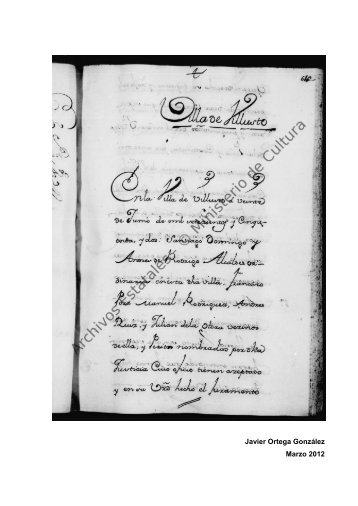 Villa de Villusto
En la Villa de Villusto a veinte
de Junio de mil setezientos y Cinqu
enta, y dos: Santiago Domingo y
Andres de Rodrigo Alcaldes or-
dinarios en esta dha villa, Francisco
Manuel Rodriguez, Andres
Ruiz, y Julian dela vezinos
de ella, y Peritos nombrados por dha
Justicia Cuio ofizio tienen azeptado
y en su hecho el Juramento
Archivos Estatales © Ministerio de Cultura
Javier Ortega González
Marzo 2012